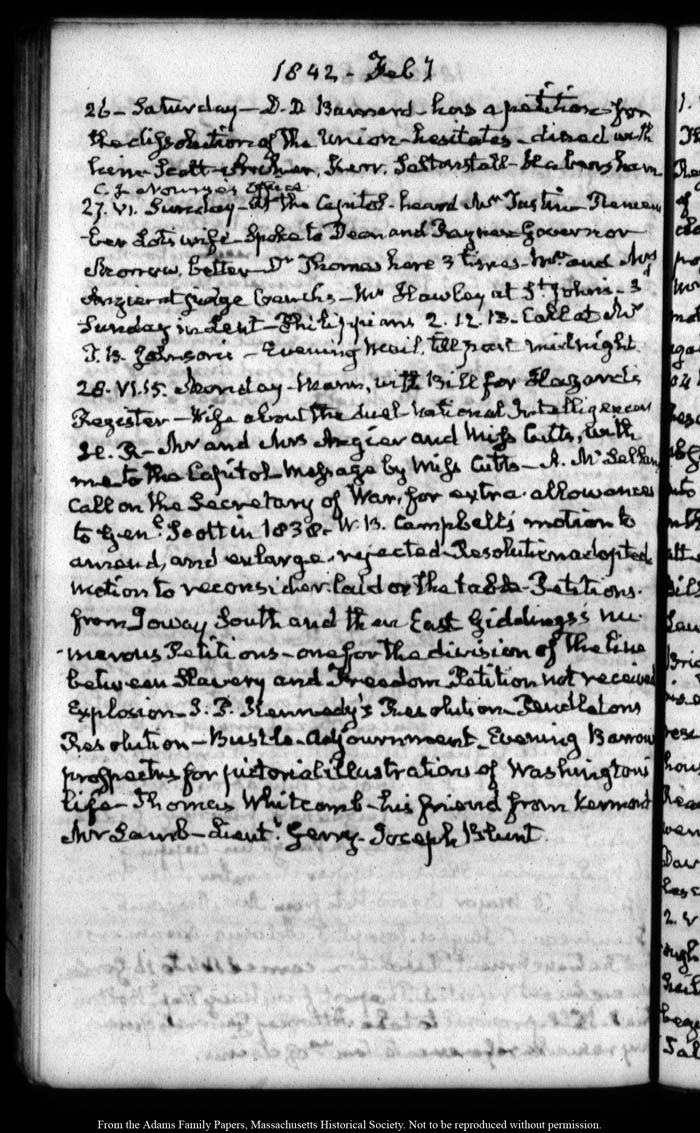 1842 - Feby
26 - Saturday - D. D. Barnard - has a petition - for
the dissolution of the Union - hesitates - dined with
him Scott - Archer, Kerr. Saltonstall - Habersham
C. J. Nourse's Office
27. VI. Sunday - at the Capitol - heard Mr Tustin Remem
ber Lots wife - Spoke to Dean and Rayner Governor
Morrow, better - Dr Thomas here 3 times - Mr and Mrs
Angier at Judge Cranch's - Mr Hawley at St Johns - 3d
Sunday in Lent - Philippians 2. 12. 13 - Call at Mr
J. B. Johnson's - Evening Mail, till past midnight.
28. VI.15. Monday - Mann, with Bill for Hazard's
Register - Wife about the duel - National Intelligencer
H. R - Mr and Mrs Angier and Miss Cutts, with
me to the Capitol - Message by Miss Cutts - A. McLellan
Call on the Secretary of War, for extra - allowances
to Genl Scott in 1838 - W. B. Campbell's motion to
amend, and enlarge, rejected - Resolution adopted
Motion to reconsider laid on the table - Petitions.
from Ioway South and then East Giddings's nu-
merous Petitions - one for the division of the line
between Slavery and Freedom Petition not received
Explosion - J. P. Kennedy's Resolution - Pendletons
Resolution - Bustle - Adjournment - Evening Barrow
prospectus for pictorial illustrations of Washington's
life - Thomas Whitcomb - his friend from Vermont
Mr Lamb - Lieutt Gerry - Joseph Blunt
From the Adams Family Papers, Massachusetts Historical Society. Not to be reproduced without permission.